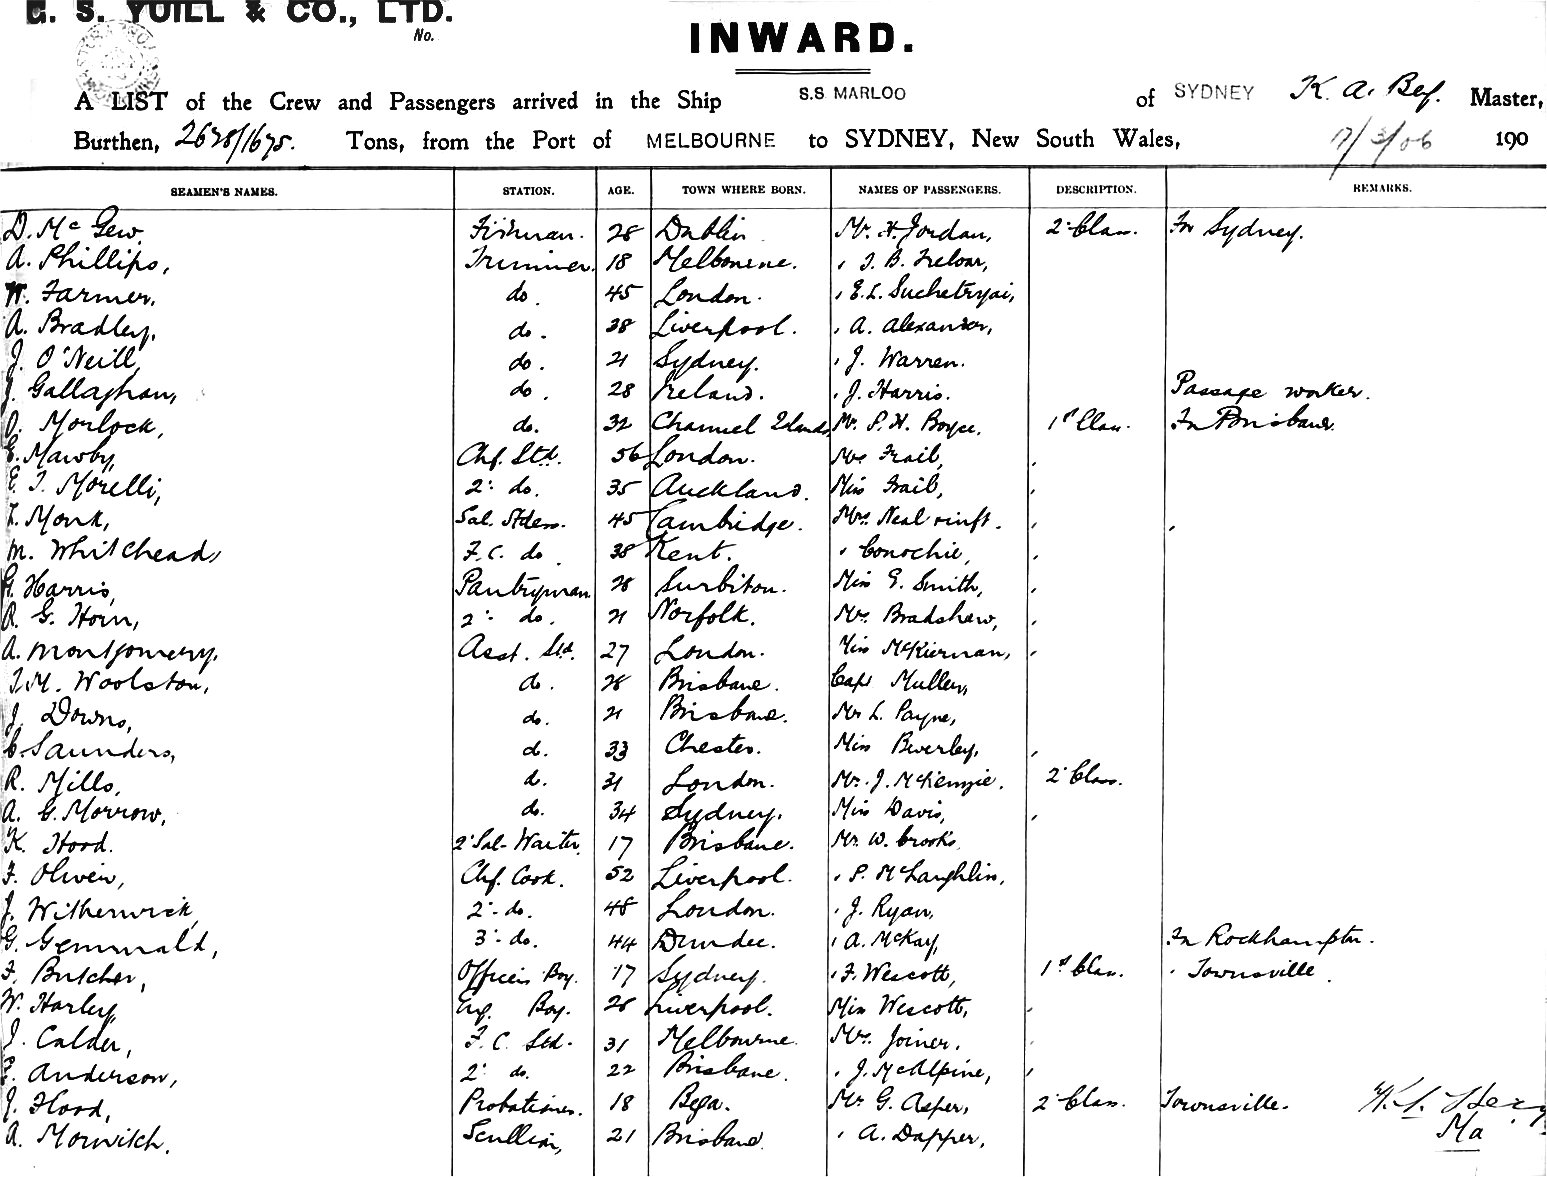 G. S. YUILL & CO., LTD.
No.
INWARD.
A LIST of the Crew and Passengers arrived in the Ship S.S MARLOO of SYDNEY K. A. Master,
Burthen, 2628/1675. Tons, from the Port of MELBOURNE to SYDNEY, New South Wales, 17/3/06 190
SEAMEN'S NAMES. STATION. AGE. TOWN WHERE BORN. NAMES OF PASSENGERS. DESCRIPTION. REMARKS.
D. Mc Gew, Fireman. 28 Dublin Mr. H. Jordan, 2 Class. For Sydney.
A. Phillips, Trimmer. 18 Melbourne. " J. B. Treloar,
W. Farmer, do. 45 London. " E. L.
A. Bradley, do. 38 Liverpool. " A. Alexander,
J. O'Neill, do. 21 Sydney. " J. Warren.
J. Gallaghan, do. 28 Ireland. " J. Harris. Passage worker.
O. Morlock, do. 32 Channel Islands Mr. P. H. Boyce, 1st Class. For Brisbane.
E. Mawby, Chf. Std. 56 London. Mrs Trail, "
E. J. Morelli, 2. do. 35 Auckland. Miss Trail, "
L. Monk, Sal. Stdess. 45 Cambridge. Mrs. Neal " "
M. Whitehead, F.C. do 38 Kent. " Conochie, "
G. Harris, Pantryman 28 Surbiton. Miss E. Smith, "
R. G. Horn, 2. do. 21 Norfolk. Mr. Bradshaw, "
A. Montgomery, Asst. Std. 27 London. Miss McKiernan, "
J. M. Woolston, do. 28 Brisbane. Capt Mullen,
J. Downs, do. 21 Brisbane. Mr L. Payne,
C. Saunders, d. 33 Chester. Miss Beverley, "
R. Mills, d. 31 London. Mr. J. McKenzie. 2 Class.
A. G. Morrow, d. 34 Sydney. Miss Davis, "
K. Hood. 2 Sal-Waiter. 17 Brisbane. Mr. W. Crooks,
F. Oliven, Chf. Cook. 52 Liverpool. " P. McLaughlin,
J. Witherwick, 2. do. 48 London. " J. Ryan,
G. Gemmald, 3. do. 44 Dundee. " A. McKay, For Rockhampton.
F. Butcher, Officers Boy. 17 Sydney. " F. Wescott, 1st Class. " Townsville.
W. Harley, Eng. Boy. 28 Liverpool. Miss Wescott, "
J. Calder, F. C. Std. 31 Melbourne. Mrs. Joiner, "
E. Anderson, 2. do. 22 Brisbane. " J. McAlpine, "
J. Flood, Probationer. 18 Bega. Mr G. Asper, 2 Class. Townsville.
A. Morwitch. Scullion, 21 Brisbane. " A. Dapper, Ma